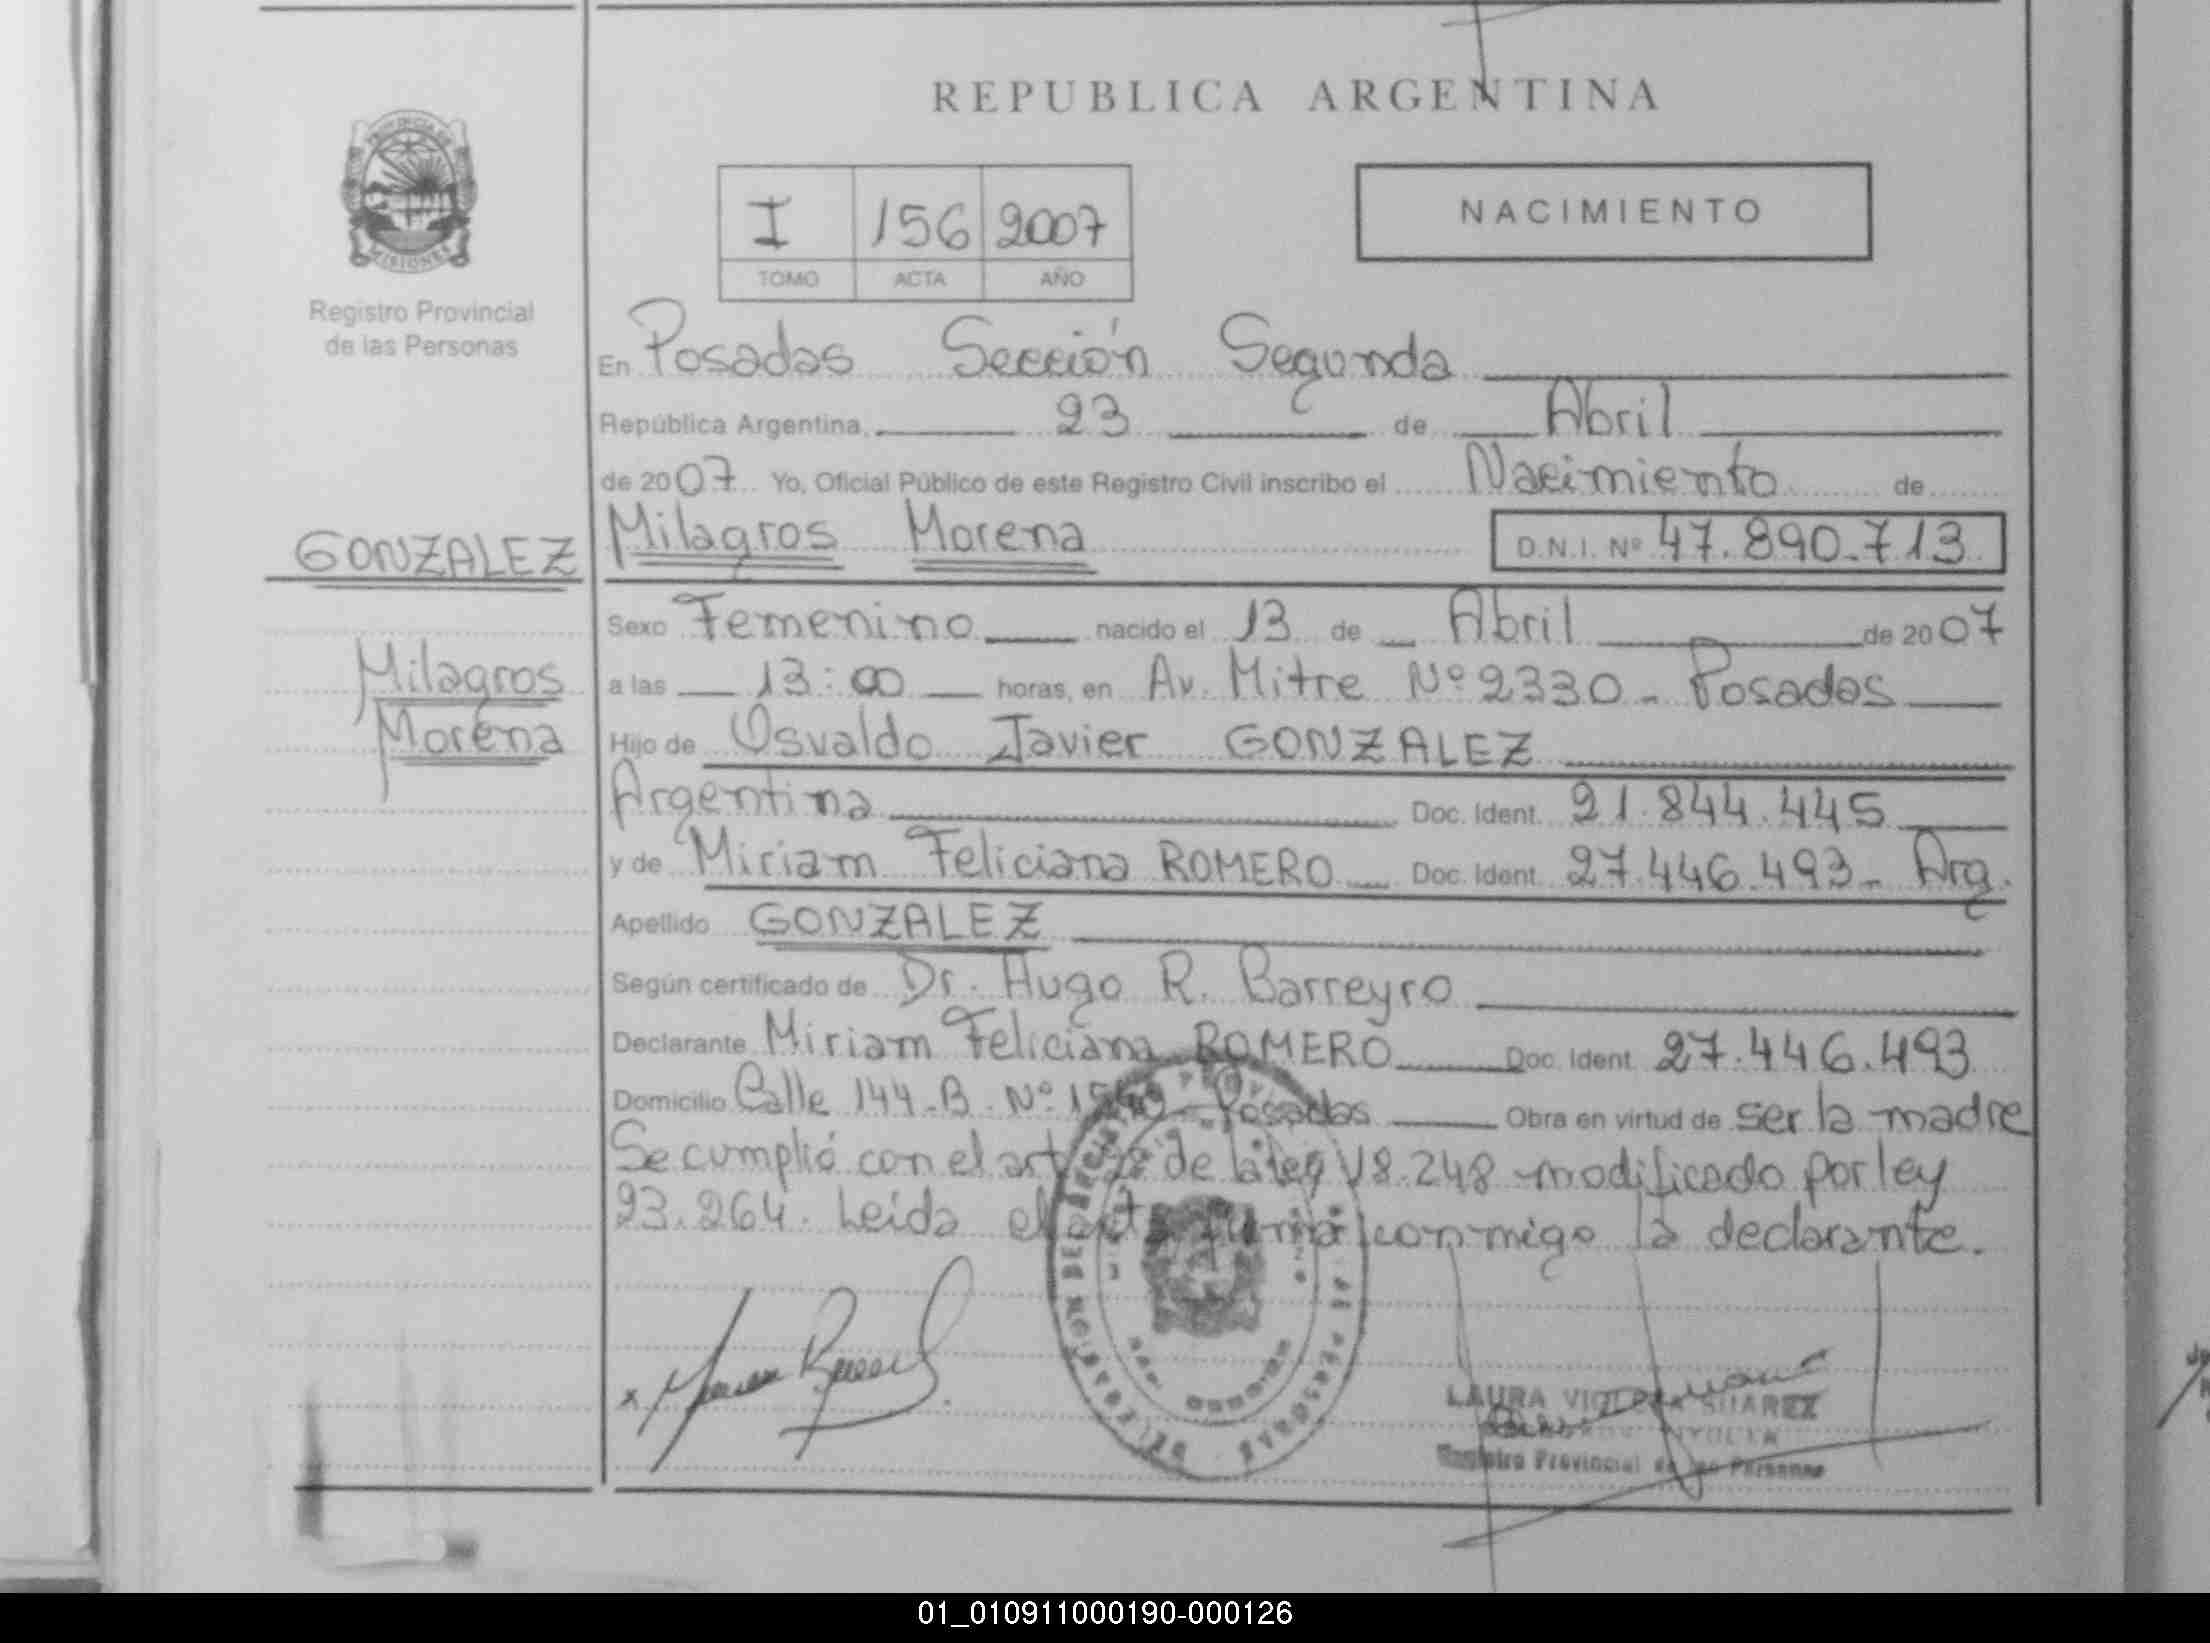 REPUBLICA ARGENTINA
PROVINCIA DE
MISIONES
Registro Provincial
de las Personas
I 156 2007
TOMO ACTA AÑO
NACIMIENTO
En Posadas Sección Segunda
República Argentina, 23 de Abril
de 2007 Yo, Oficial Público de este Registro Civil inscribo el Nacimiento de
GONZALEZ
Milagros Morena D.N.I. Nº 47.890.713
Sexo Femenino nacido el 13 de Abril de 2007
Milagros
Morena
a las 13:00 horas, en Av. Mitre Nº 2330 - Posadas
Hijo de Osvaldo Javier GONZALEZ
Argentina Doc. Ident. 21.844.445
y de Miriam Feliciana ROMERO Doc. Ident. 27.446.493- Arg.
Apellido GONZALEZ
Según certificado de Dr. Hugo R. Barreyro
Declarante Miriam Feliciana ROMERO Doc. Ident. 27.446.493
Domicilio Calle 144-B- Nº Posadas Obra en virtud de ser la madre
Se cumplió con el art de la ley 18.248 modificado por ley
23.264. Leída el acta firma conmigo la declarante.
LAURA SUAREZ
Registro Provincial de las Personas
01_010911000190-000126